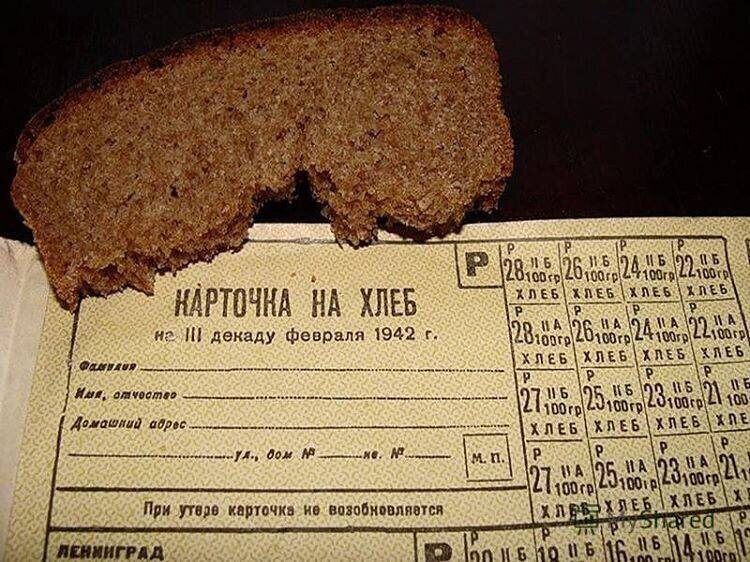 КАРТОЧКА НА ХЛЕБ
на III декаду февраля 1942 г.
Фамилия
Имя, отчество
Домашний адрес
ул., дом № кв. №
М. П.
При утере карточка не возобновляется
ЛЕНИНГРАД
Р
Р Р Р Р
28 II Б 100гр 26 II Б 100гр 24 II Б 100гр 22 II Б 100гр
ХЛЕБ ХЛЕБ ХЛЕБ ХЛЕБ
Р Р Р Р
28 II А 100гр 26 II А 100гр 24 II А 100гр 22 II А 100гр
ХЛЕБ ХЛЕБ ХЛЕБ ХЛЕБ
Р Р Р Р
27 II Б 100гр 25 II Б 100гр 23 II Б 100гр 21 II Б 100
ХЛЕБ ХЛЕБ ХЛЕБ ХЛЕБ
Р Р Р Р
27 II А 100гр 25 II А 100гр 23 II А 100гр 21
ХЛЕБ ХЛЕБ ХЛЕБ
Р
20 II Б 18 II Б 16 II Б 14 II Б
MyShared